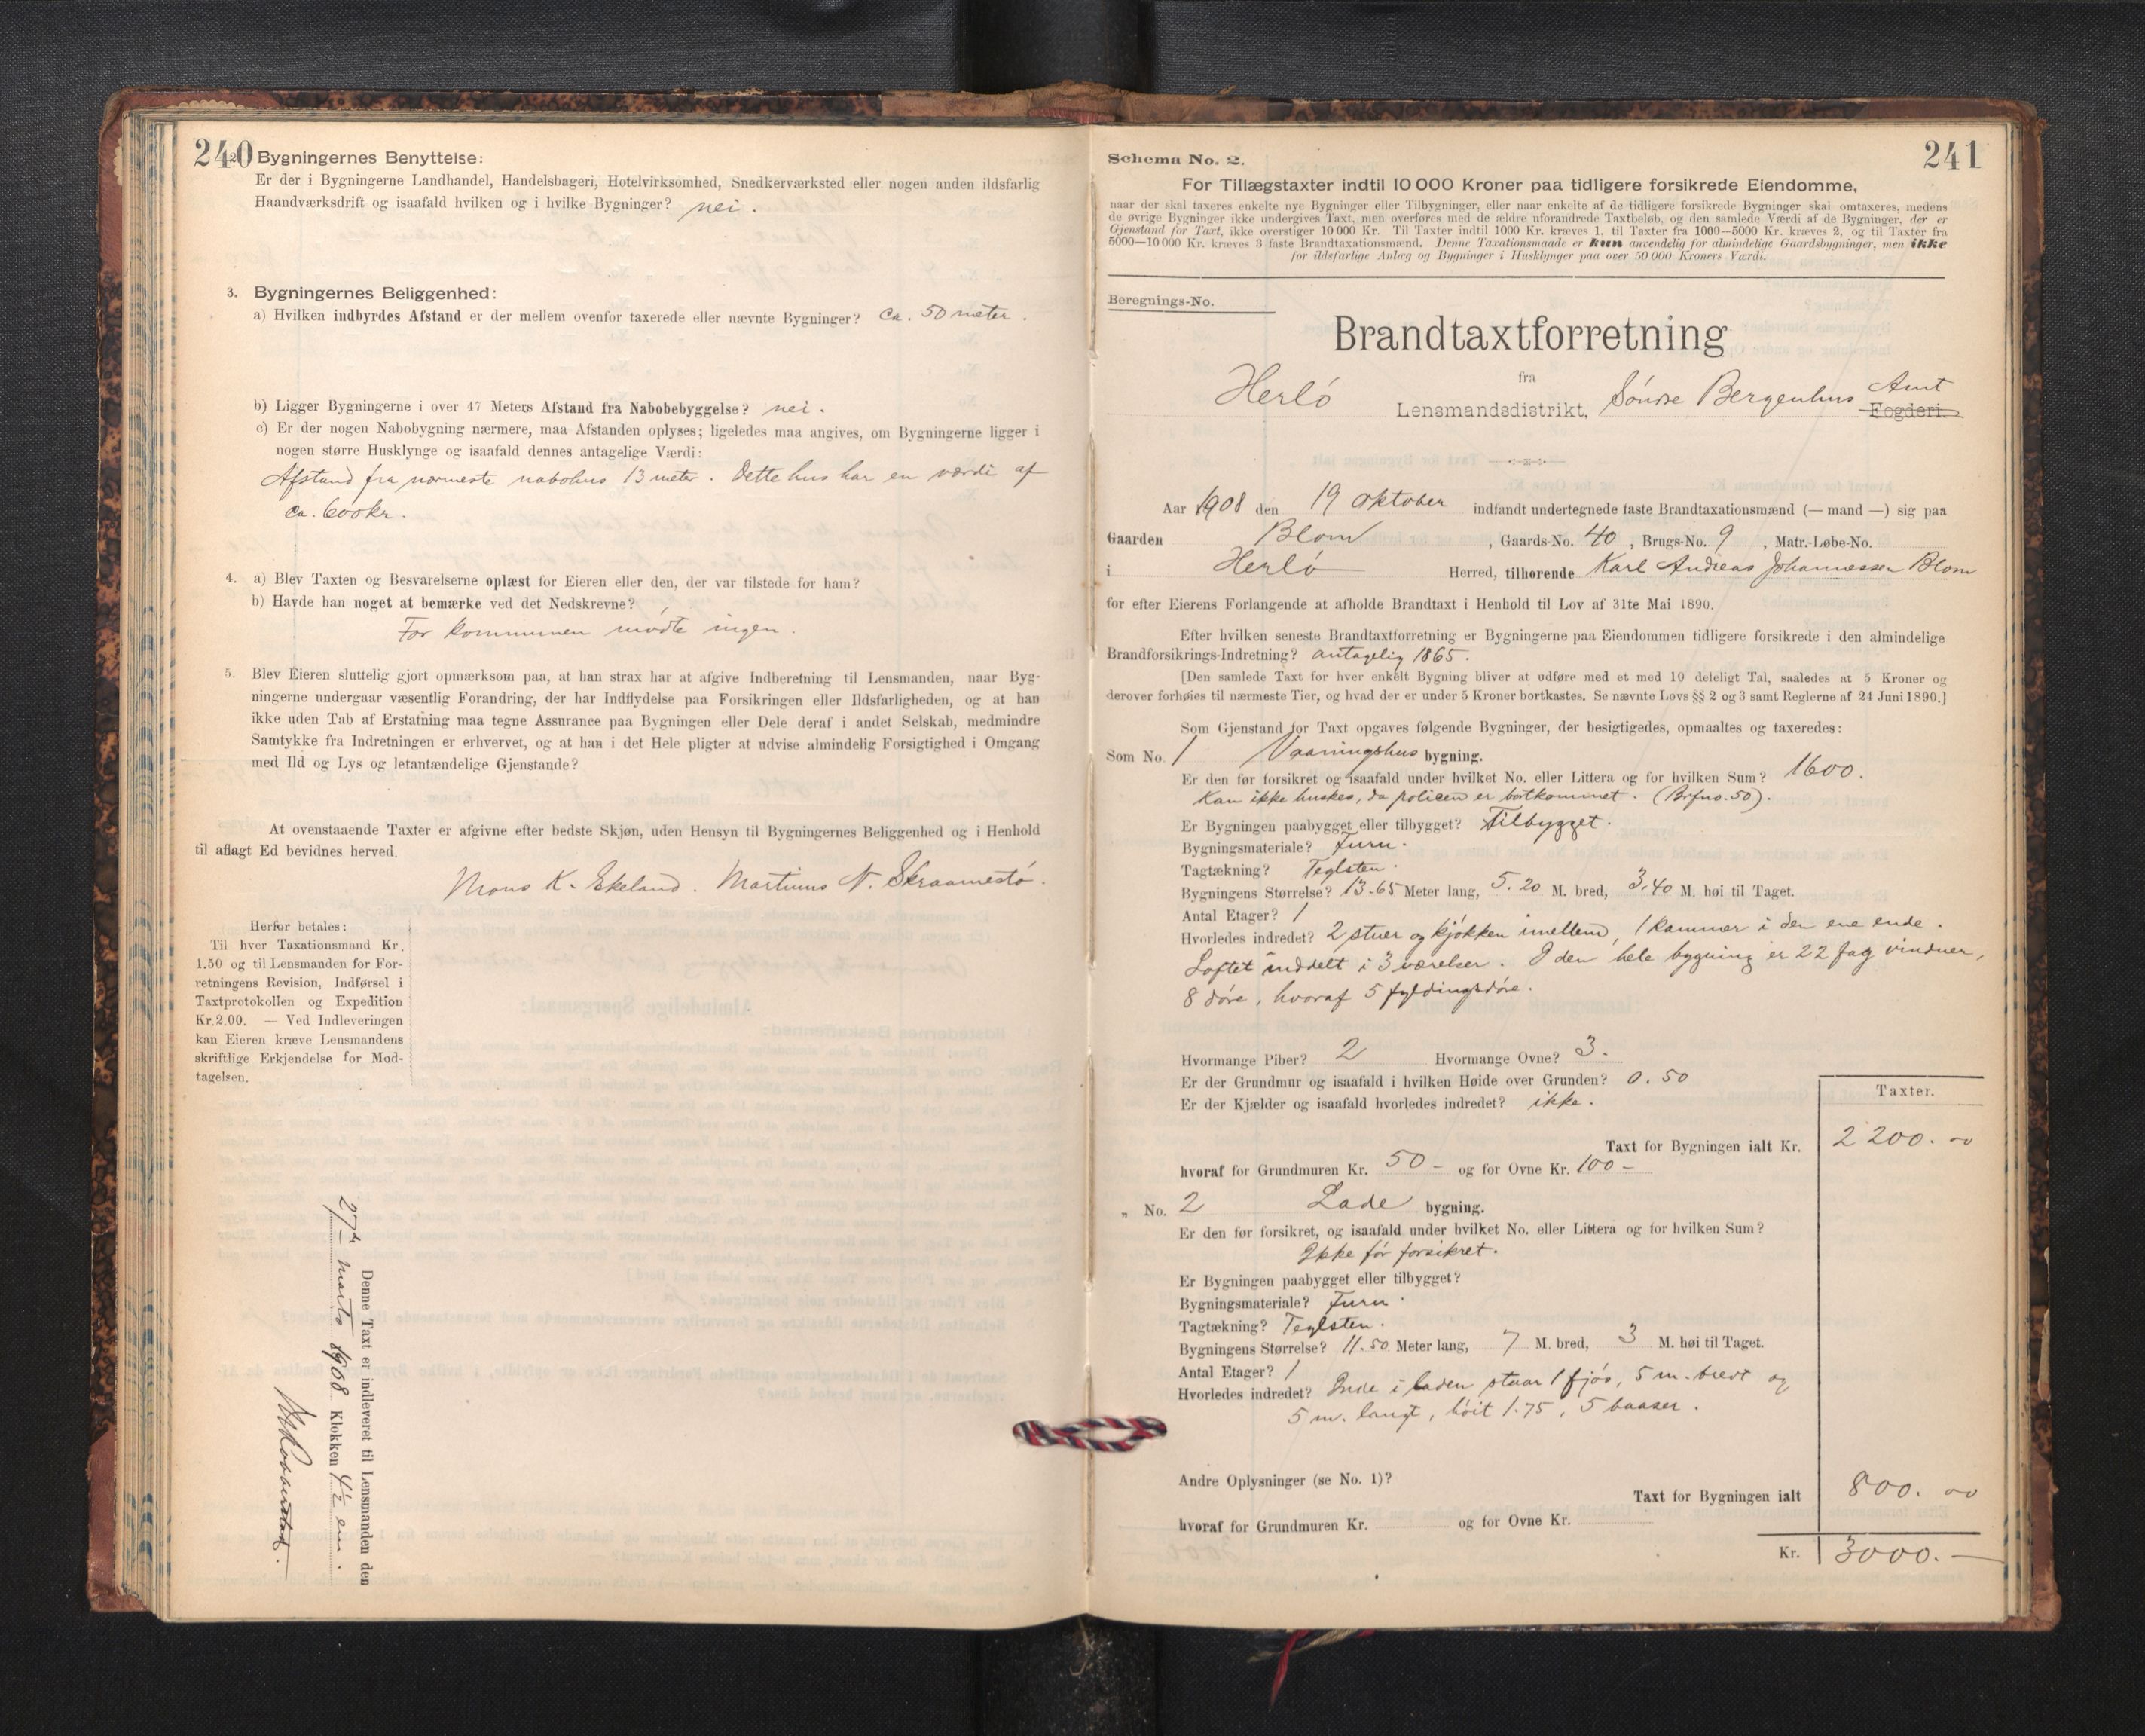 240
2. Bygningernes Benyttelse:
Er der i Bygningerne Landhandel, Handelsbageri, Hotelvirksomhed, Snedkerværksted eller nogen anden ildsfarlig
Haandværksdrift og isaafald hvilken og i hvilke Bygninger? nei.
3. Bygningernes Beliggenhed:
a) Hvilken indbyrdes Afstand er der mellem ovenfor taxerede eller nævnte Bygninger? Ca. 50 meter.
b) Ligger Bygningerne i over 47 Meters Afstand fra Nabobebyggelse? nei.
c) Er der nogen Nabobygning nærmere, maa Afstanden oplyses; ligeledes maa angives, om Bygningerne ligger i
nogen større Husklynge og isaafald dennes antagelige Værdi:
Afstand fra nærmeste nabohus 13 meter. Dette hus har en værdi af
ca. 600 kr.
4. a) Blev Taxten og Besvarelserne oplæst for Eieren eller den, der var tilstede for ham?
b) Havde han noget at bemærke ved det Nedskrevne?
For kommunen mødte ingen.
5. Blev Eieren sluttelig gjort opmærksom paa, at han strax har at afgive Indberetning til Lensmanden, naar Byg-
ningerne undergaar væsentlig Forandring, der har Indflydelse paa Forsikringen eller Ildsfarligheden, og at han
ikke uden Tab af Erstatning maa tegne Assurance paa Bygningen eller Dele deraf i andet Selskab, medmindre
Samtykke fra Indretningen er erhvervet, og at han i det Hele pligter at udvise almindelig Forsigtighed i Omgang
med Ild og Lys og letantændelige Gjenstande?
At ovenstaaende Taxter er afgivne efter bedste Skjøn, uden Hensyn til Bygningernes Beliggenhed og i Henhold
til aflagt Ed bevidnes herved.
Mons K. Ekeland. Martinus N. Skraamestø.
Herfor betales:
Til hver Taxationsmand Kr.
1.50 og til Lensmanden for For-
retningens Revision, Indførsel i
Taxtprotokollen og Expedition
Kr. 2.00. — Ved Indleveringen
kan Eieren kræve Lensmandens
skriftlige Erkjendelse for Mod-
tagelsen.
Denne Taxt er indleveret til Lensmanden den
27de marts 1908 Klokken 4½ em.
241
Schema No. 2.
For Tillægstaxter indtil 10 000 Kroner paa tidligere forsikrede Eiendomme,
naar der skal taxeres enkelte nye Bygninger eller Tilbygninger, eller naar enkelte af de tidligere forsikrede Bygninger skal omtaxeres, medens
de øvrige Bygninger ikke undergives Taxt, men overføres med de ældre uforandrede Taxtbeløb, og den samlede Værdi af de Bygninger, der er
Gjenstand for Taxt, ikke overstiger 10 000 Kr. Til Taxter indtil 1000 Kr. kræves 1, til Taxter fra 1000—5000 Kr. kræves 2, og til Taxter fra
5000—10 000 Kr. kræves 3 faste Brandtaxationsmænd. Denne Taxationsmaade er kun anvendelig for almindelige Gaardsbygninger, men ikke
for ildsfarlige Anlæg og Bygninger i Husklynger paa over 50 000 Kroners Værdi.
Beregnings-No.
Brandtaxtforretning
fra
Herlø Lensmandsdistrikt, Søndre Bergenhus Amt Fogderi.
Aar 1908 den 19 oktober indfandt undertegnede faste Brandtaxationsmænd (— mand —) sig paa
Gaarden Blom, Gaards-No. 40, Brugs-No. 9, Matr.-Løbe-No.
i Herlø Herred, tilhørende Karl Andreas Johannessen Blom
for efter Eierens Forlangende at afholde Brandtaxt i Henhold til Lov af 31te Mai 1890.
Efter hvilken seneste Brandtaxtforretning er Bygningerne paa Eiendommen tidligere forsikrede i den almindelige
Brandforsikrings-Indretning? antagelig 1865.
[Den samlede Taxt for hver enkelt Bygning bliver at udføre med et med 10 deleligt Tal, saaledes at 5 Kroner og
derover forhøies til nærmeste Tier, og hvad der er under 5 Kroner bortkastes. Se nævnte Lovs §§ 2 og 3 samt Reglerne af 24 Juni 1890.]
Som Gjenstand for Taxt opgaves følgende Bygninger, der besigtigedes, opmaaltes og taxeredes:
Som No. 1 Vaaningshus bygning.
Er den før forsikret og isaafald under hvilket No. eller Littera og for hvilken Sum? 1600.
Kan ikke huskes, da policen er bortkommet. (Brfno. 50).
Er Bygningen paabygget eller tilbygget? Tilbygget.
Bygningsmateriale? Furu.
Tagtækning? Teglsten.
Bygningens Størrelse? 13.65 Meter lang, 5.20 M. bred, 3.40 M. høi til Taget.
Antal Etager? 1
Hvorledes indredet? 2 stuer og kjøkken imellem, 1 kammer i den ene ende.
Loftet inddelt i 3 værelser. I den hele bygning er 22 fag vinduer,
8 døre, hvoraf 5 fyldingsdøre.
Hvormange Piber? 2 Hvormange Ovne? 3.
Er der Grundmur og isaafald i hvilken Høide over Grunden? 0.50
Er der Kjælder og isaafald hvorledes indredet? ikke.
Taxter.
Taxt for Bygningen ialt Kr. 2200.00
hvoraf for Grundmuren Kr. 50 – og for Ovne Kr. 100 –
„ No. 2 Lade bygning.
Er den før forsikret, og isaafald under hvilket No. eller Littera og for hvilken Sum?
Ikke før forsikret.
Er Bygningen paabygget eller tilbygget?
Bygningsmateriale? Furu.
Tagtækning? Teglsten.
Bygningens Størrelse? 11.50 Meter lang, 7 M. bred, 3 M. høi til Taget.
Antal Etager? 1
Hvorledes indredet? Inde i laden staar 1 fjøs, 5 m. bredt og
5 m. langt, høit 1.75, 5 baaser.
Andre Oplysninger (se No. 1)?
Taxt for Bygningen ialt 800.00
hvoraf for Grundmuren Kr. og for Ovne Kr.
Kr. 3000.—